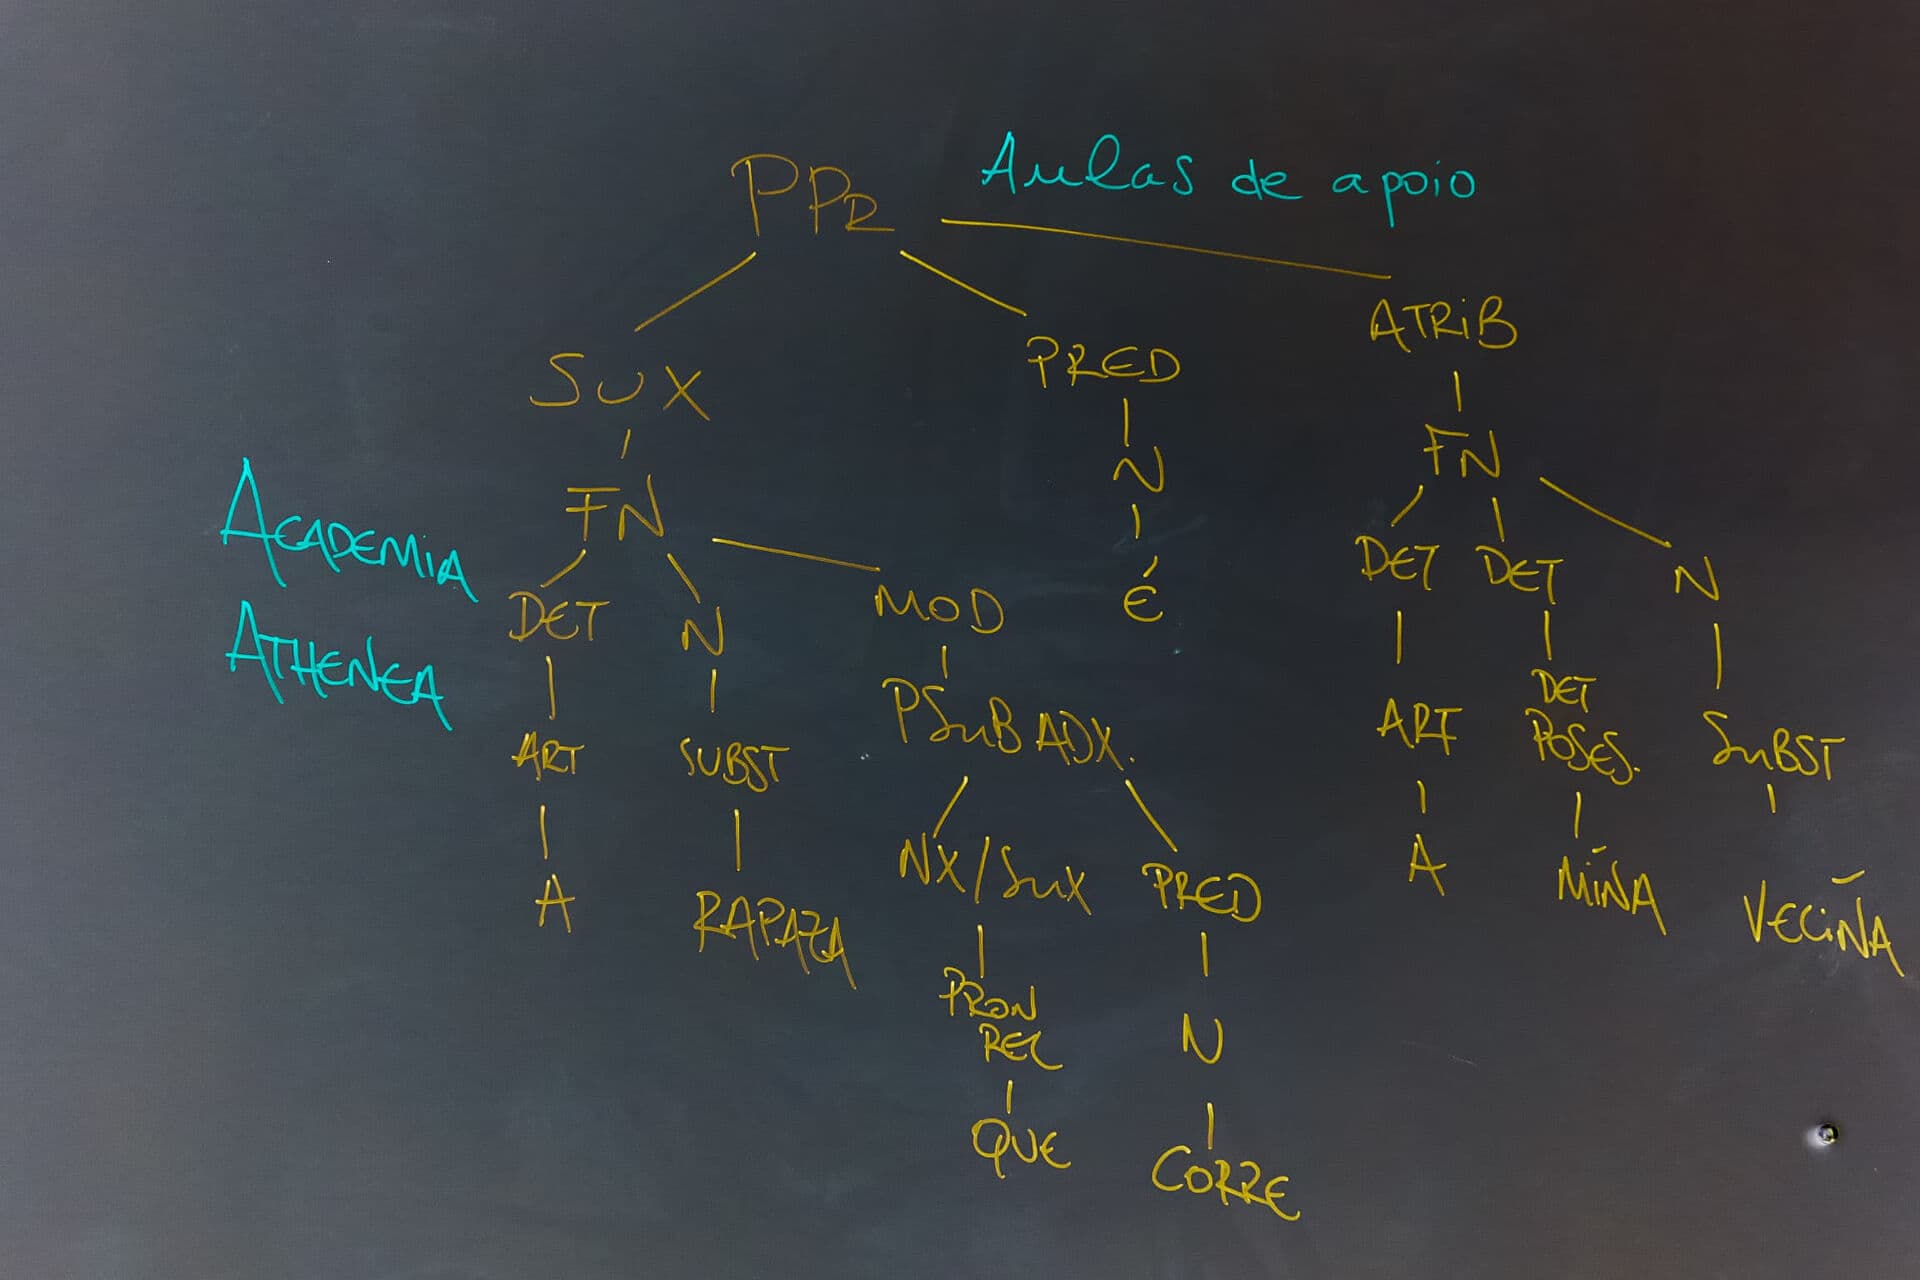 Aulas de apoio
PPR
ATRIB
SUX
PRED
FN
N
FN
ACADEMIA
ATHENEA
DET
N
MOD
É
DET
DET
N
ART
SUBST
PSUB ADX.
ART
DET
POSES.
SUBST
A
RAPAZA
NX/SUX
PRED
A
MIÑA
VECIÑA
PRON
REL
N
QUE
CORRE